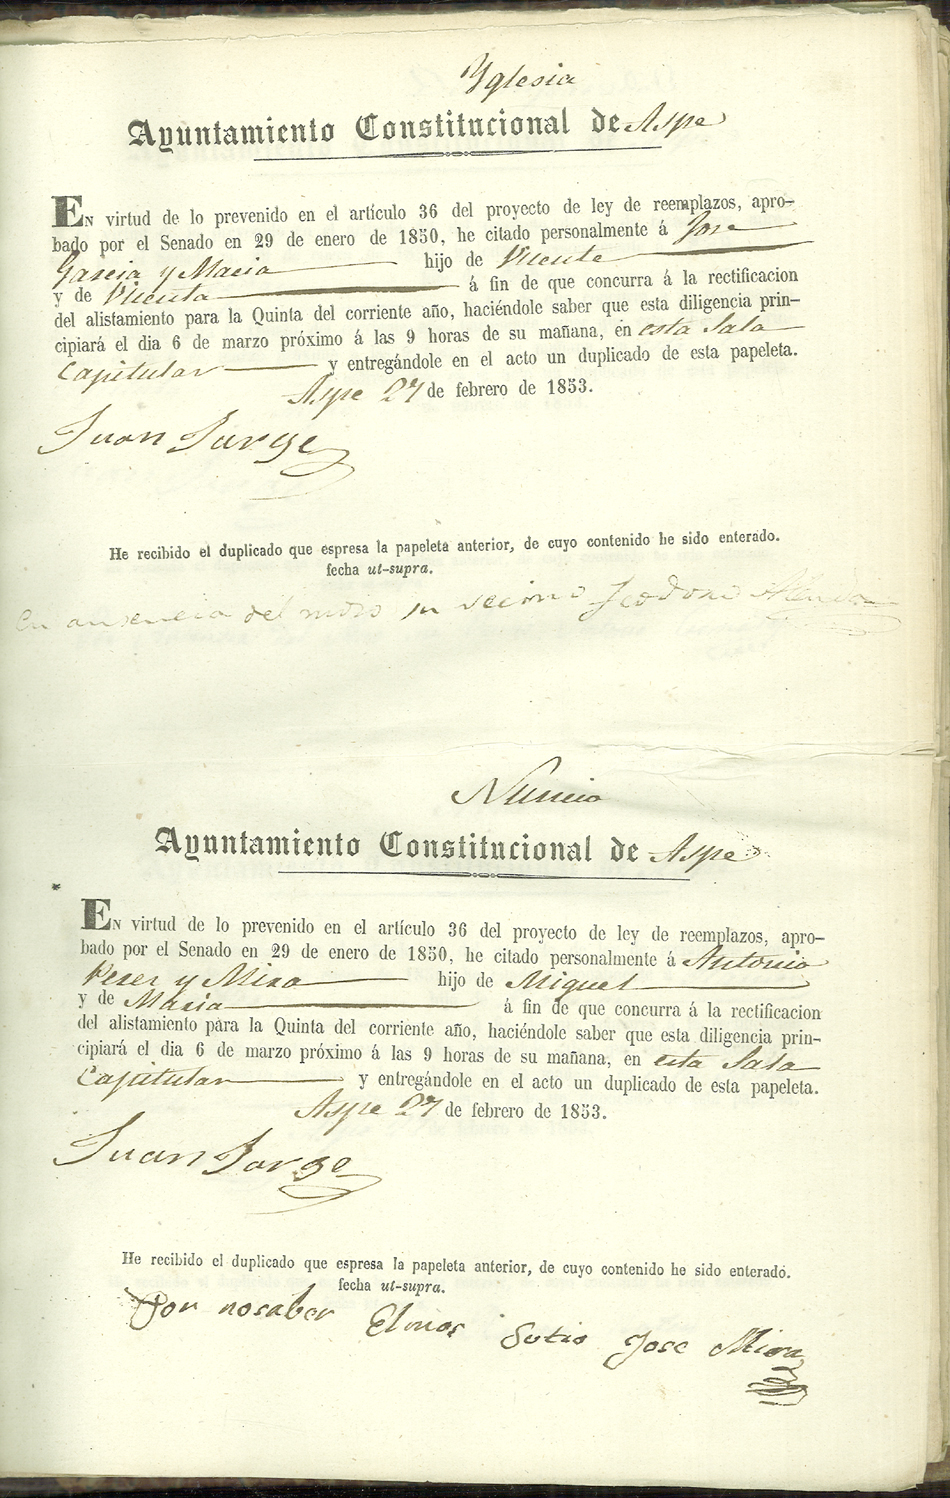 Yglesia
Ayuntamiento Constitucional de Aspe
En virtud de lo prevenido en el artículo 36 del proyecto de ley de reemplazos, apro-
bado por el Senado en 29 de enero de 1850, he citado personalmente á Jose
Garcia y Macia hijo de Vicente
y de Vicenta á fin de que concurra á la rectificacion
del alistamiento para la Quinta del corriente año, haciéndole saber que esta diligencia prin-
cipiará el dia 6 de marzo próximo á las 9 horas de su mañana, en esta Sala
Capitular y entregándole en el acto un duplicado de esta papeleta.
Aspe 27 de febrero de 1853.
Juan Jorge
He recibido el duplicado que espresa la papeleta anterior, de cuyo contenido he sido enterado.
fecha ut-supra.
en ausencia del moso su vecino
Nuncio
Ayuntamiento Constitucional de Aspe
En virtud de lo prevenido en el artículo 36 del proyecto de ley de reemplazos, apro-
bado por el Senado en 29 de enero de 1850, he citado personalmente á Antonio
Perez y Mira hijo de Miguel
y de Maria á fin de que concurra á la rectificacion
del alistamiento para la Quinta del corriente año, haciéndole saber que esta diligencia prin-
cipiará el dia 6 de marzo próximo á las 9 horas de su mañana, en esta Sala
Capitular y entregándole en el acto un duplicado de esta papeleta.
Aspe 27 de febrero de 1853.
Juan Jorge
He recibido el duplicado que espresa la papeleta anterior, de cuyo contenido he sido enterado.
fecha ut-supra.
Por nosaber Elmos Sutio Jose Mira